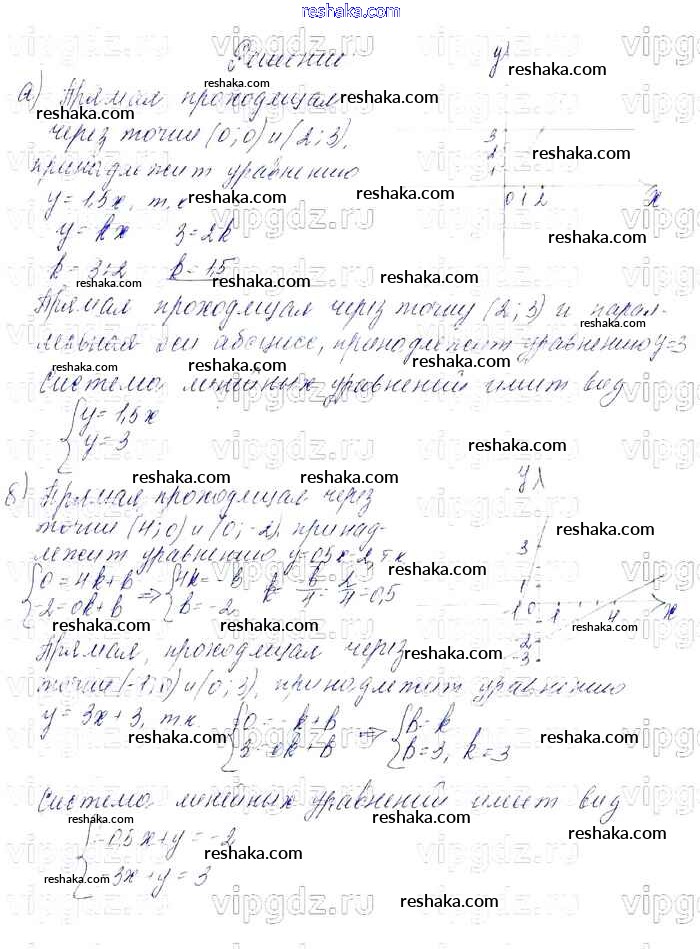 reshaka.com
Решение
а) Прямая проходящая
через точки (0; 0) и (2; 3),
принадлежит уравнению
y = 1,5x, т.к
y = kx 3 = 2k
k = 3:2 k = 1,5
Прямая проходящая через точку (2; 3) и парал-
лельная оси абсцисс, принадлежит уравнению y=3
Система линейных уравнений имеет вид
{ y = 1,5x
y = 3
y
3
2
1
0 1 2 x
б) Прямая, проходящая через
точки (4; 0) и (0; -2), принад-
лежит уравнению y=0,5x-2, т.к
{ 0 = 4k+b ⇒ { 4k = -b
-2 = 0k+b b = -2
y
3
-1 0 1 4 x
-2
-3
Прямая, проходящая через
точки (-1; 0) и (0; 3), принадлежит уравнению
y = 3x + 3, т.к. { 0 = -k+b ⇒ { b = k
3 = 0k+b b = 3, k = 3
Система линейных уравнений имеет вид
{ -0,5x + y = -2
-3x + y = 3
vipgdz.ru
reshaka.com